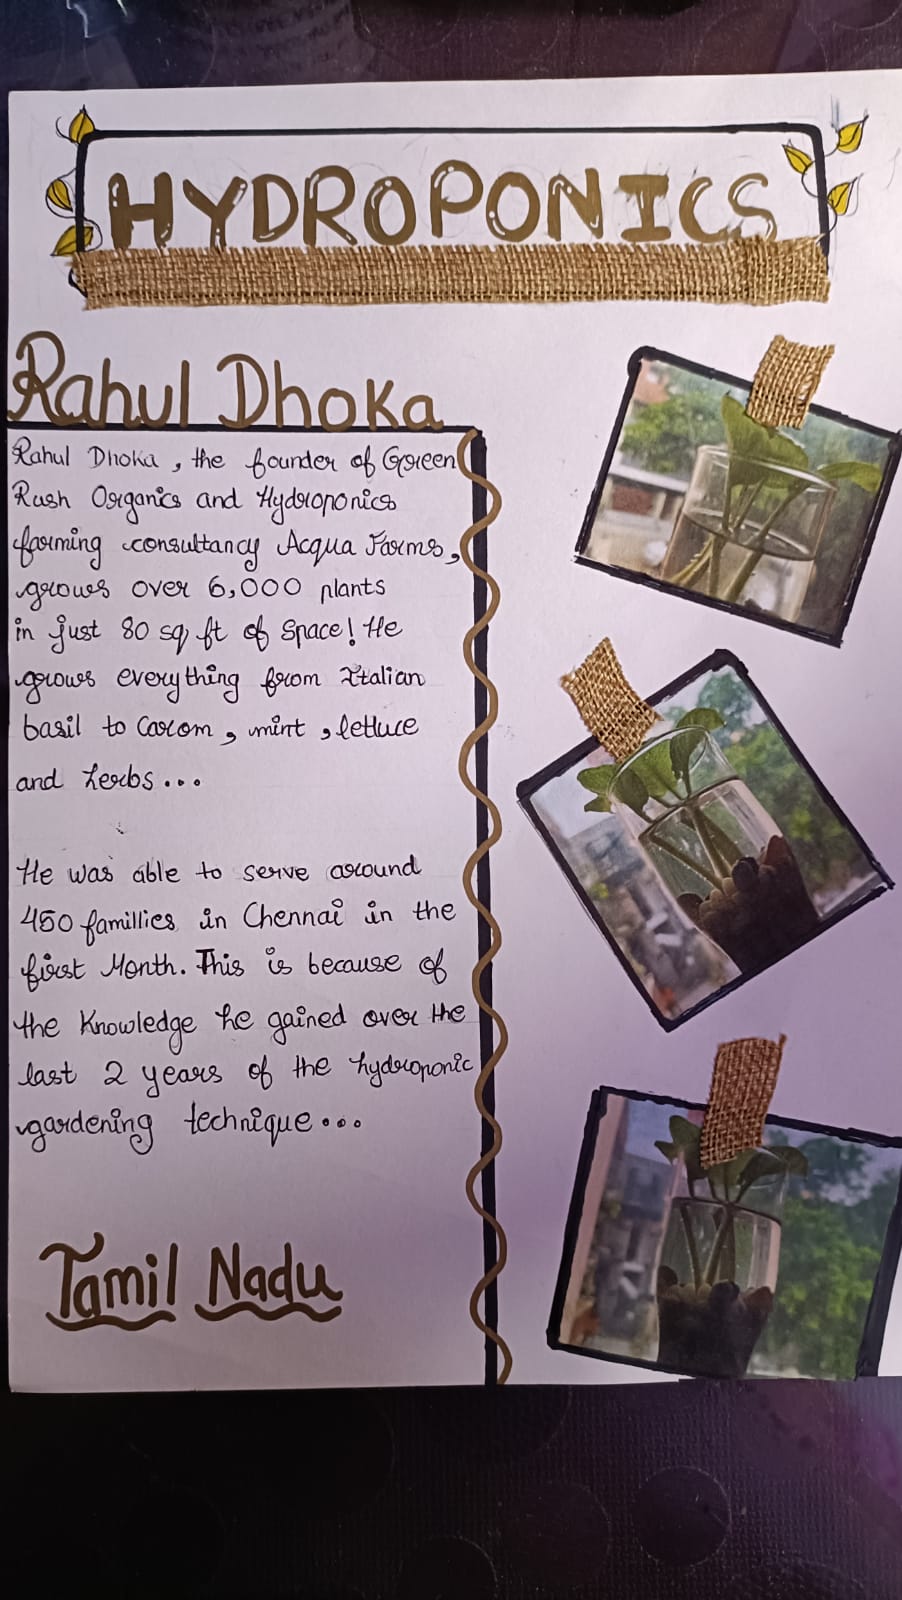 HYDROPONICS
Rahul Dhoka
Rahul Dhoka, the founder of Green
Rush Organics and Hydroponics
farming consultancy Acqua Farms,
grows over 6,000 plants
in just 80 sq ft of Space! He
grows everything from Italian
basil to Carom, mint, lettuce
and herbs...
He was able to serve around
450 famillies in Chennai in the
first Month. This is because of
the Knowledge he gained over the
last 2 years of the hydroponic
gardening technique...
Tamil Nadu